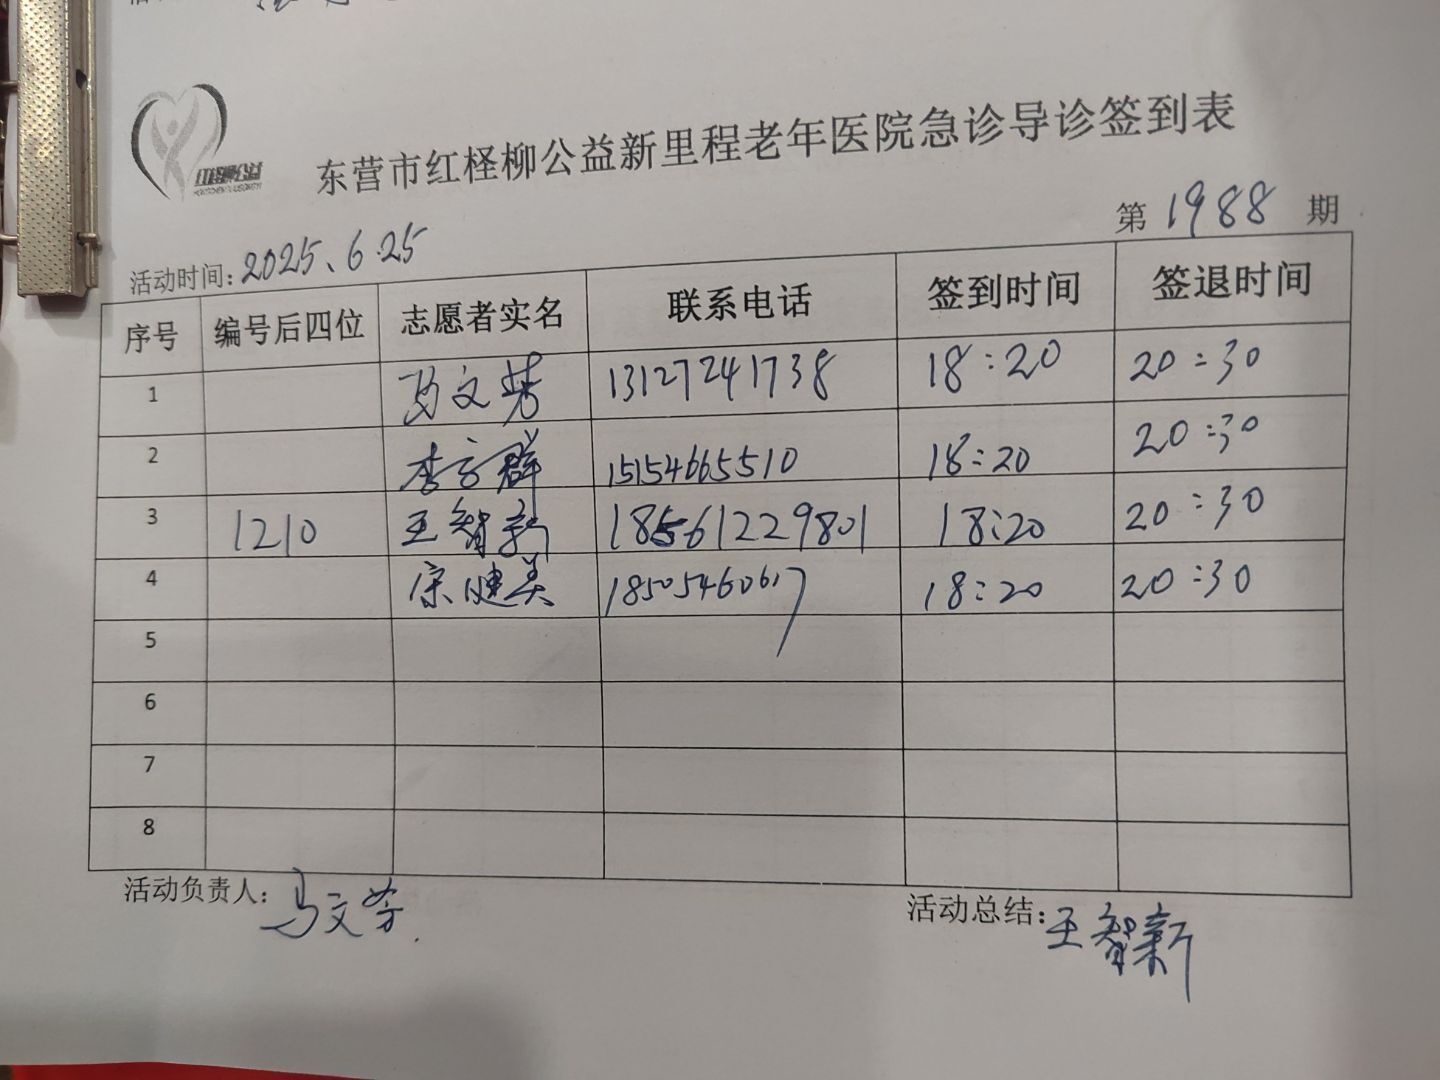 东营市红柽柳公益新里程老年医院急诊导诊签到表
第 1988 期
活动时间：2025.6.25
序号 编号后四位 志愿者实名 联系电话 签到时间 签退时间
1 马文芳 13127241738 18:20 20:30
2 李方群 15154665510 18:20 20:30
3 1210 王智新 18561229801 18:20 20:30
4 宗健美 18505460617 18:20 20:30
5
6
7
8
活动负责人：马文芳
活动总结：王智新